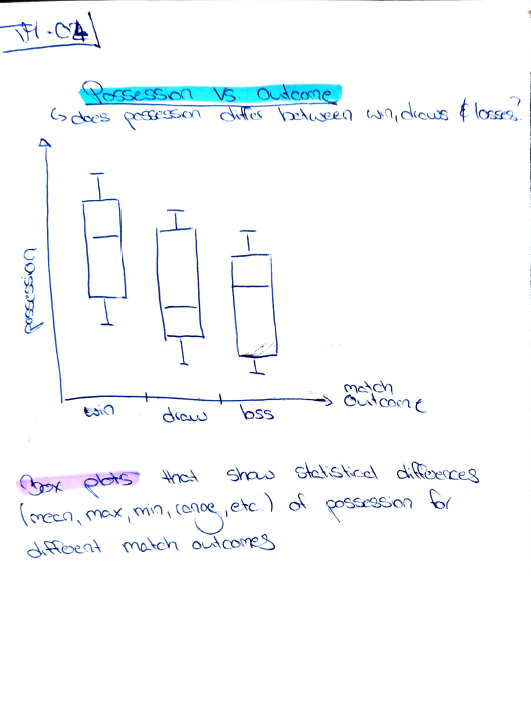 Possession vs. Outcome
↳ does possession differ between win, draws & losses?
possession
win
draw
loss
match
outcome
Box plots that show statistical differences
(mean, max, min, range, etc.) of possession for
different match outcomes